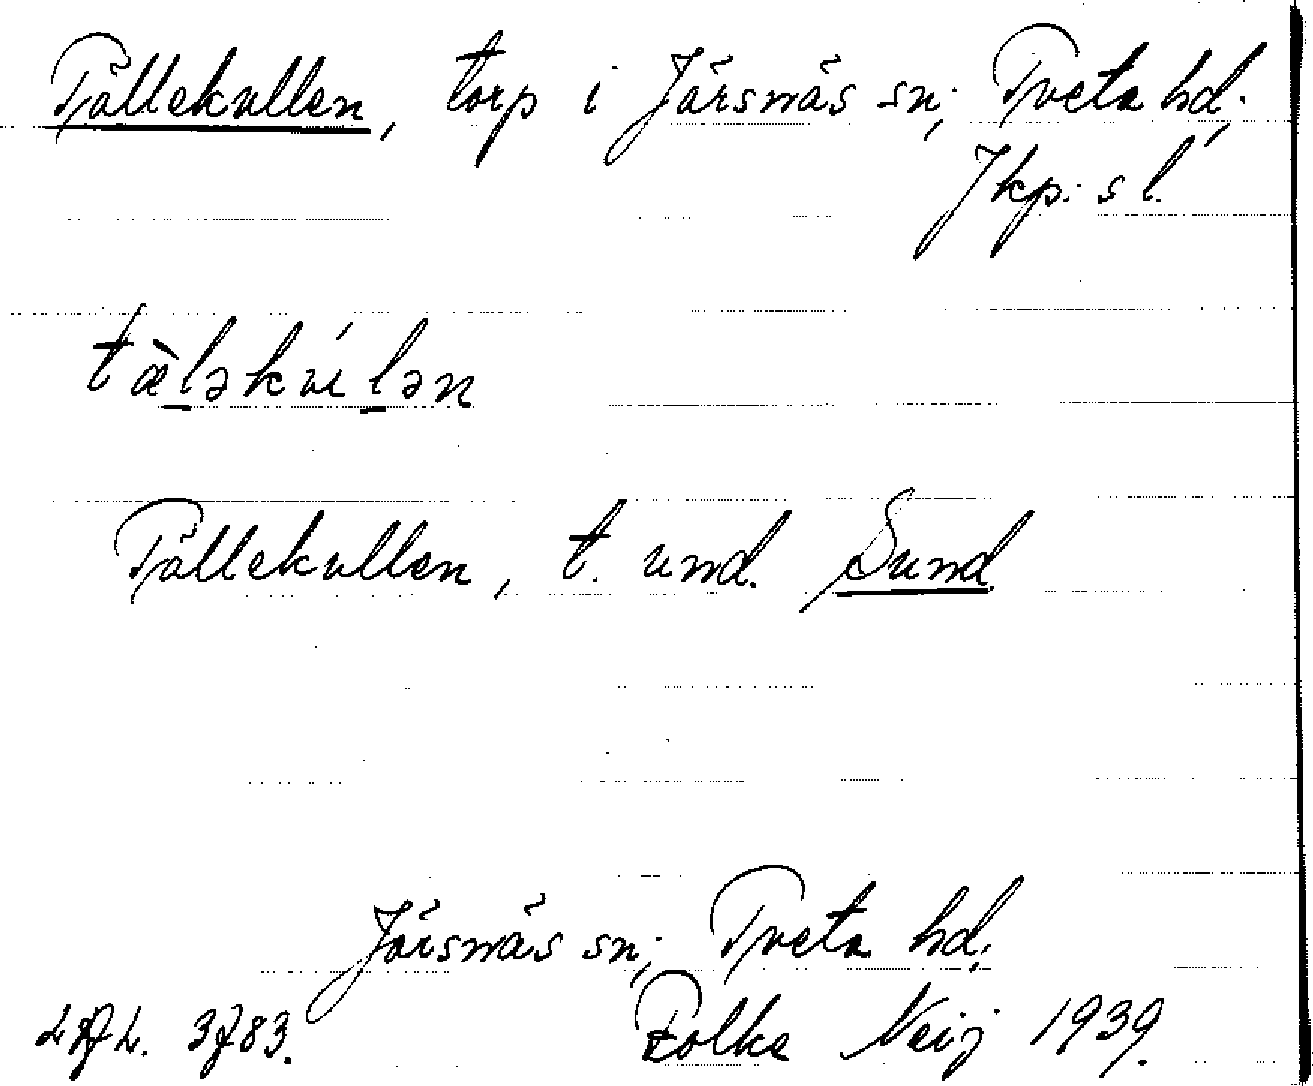 Tällekullen, torp i Järsnäs sn; Tveta hd.
Jkp:s l.
tæ̀ləkuĺən
Tällekullen, t. und. Sund
Järsnäs sn; Tveta hd.
3783. Folke Neij 1939.